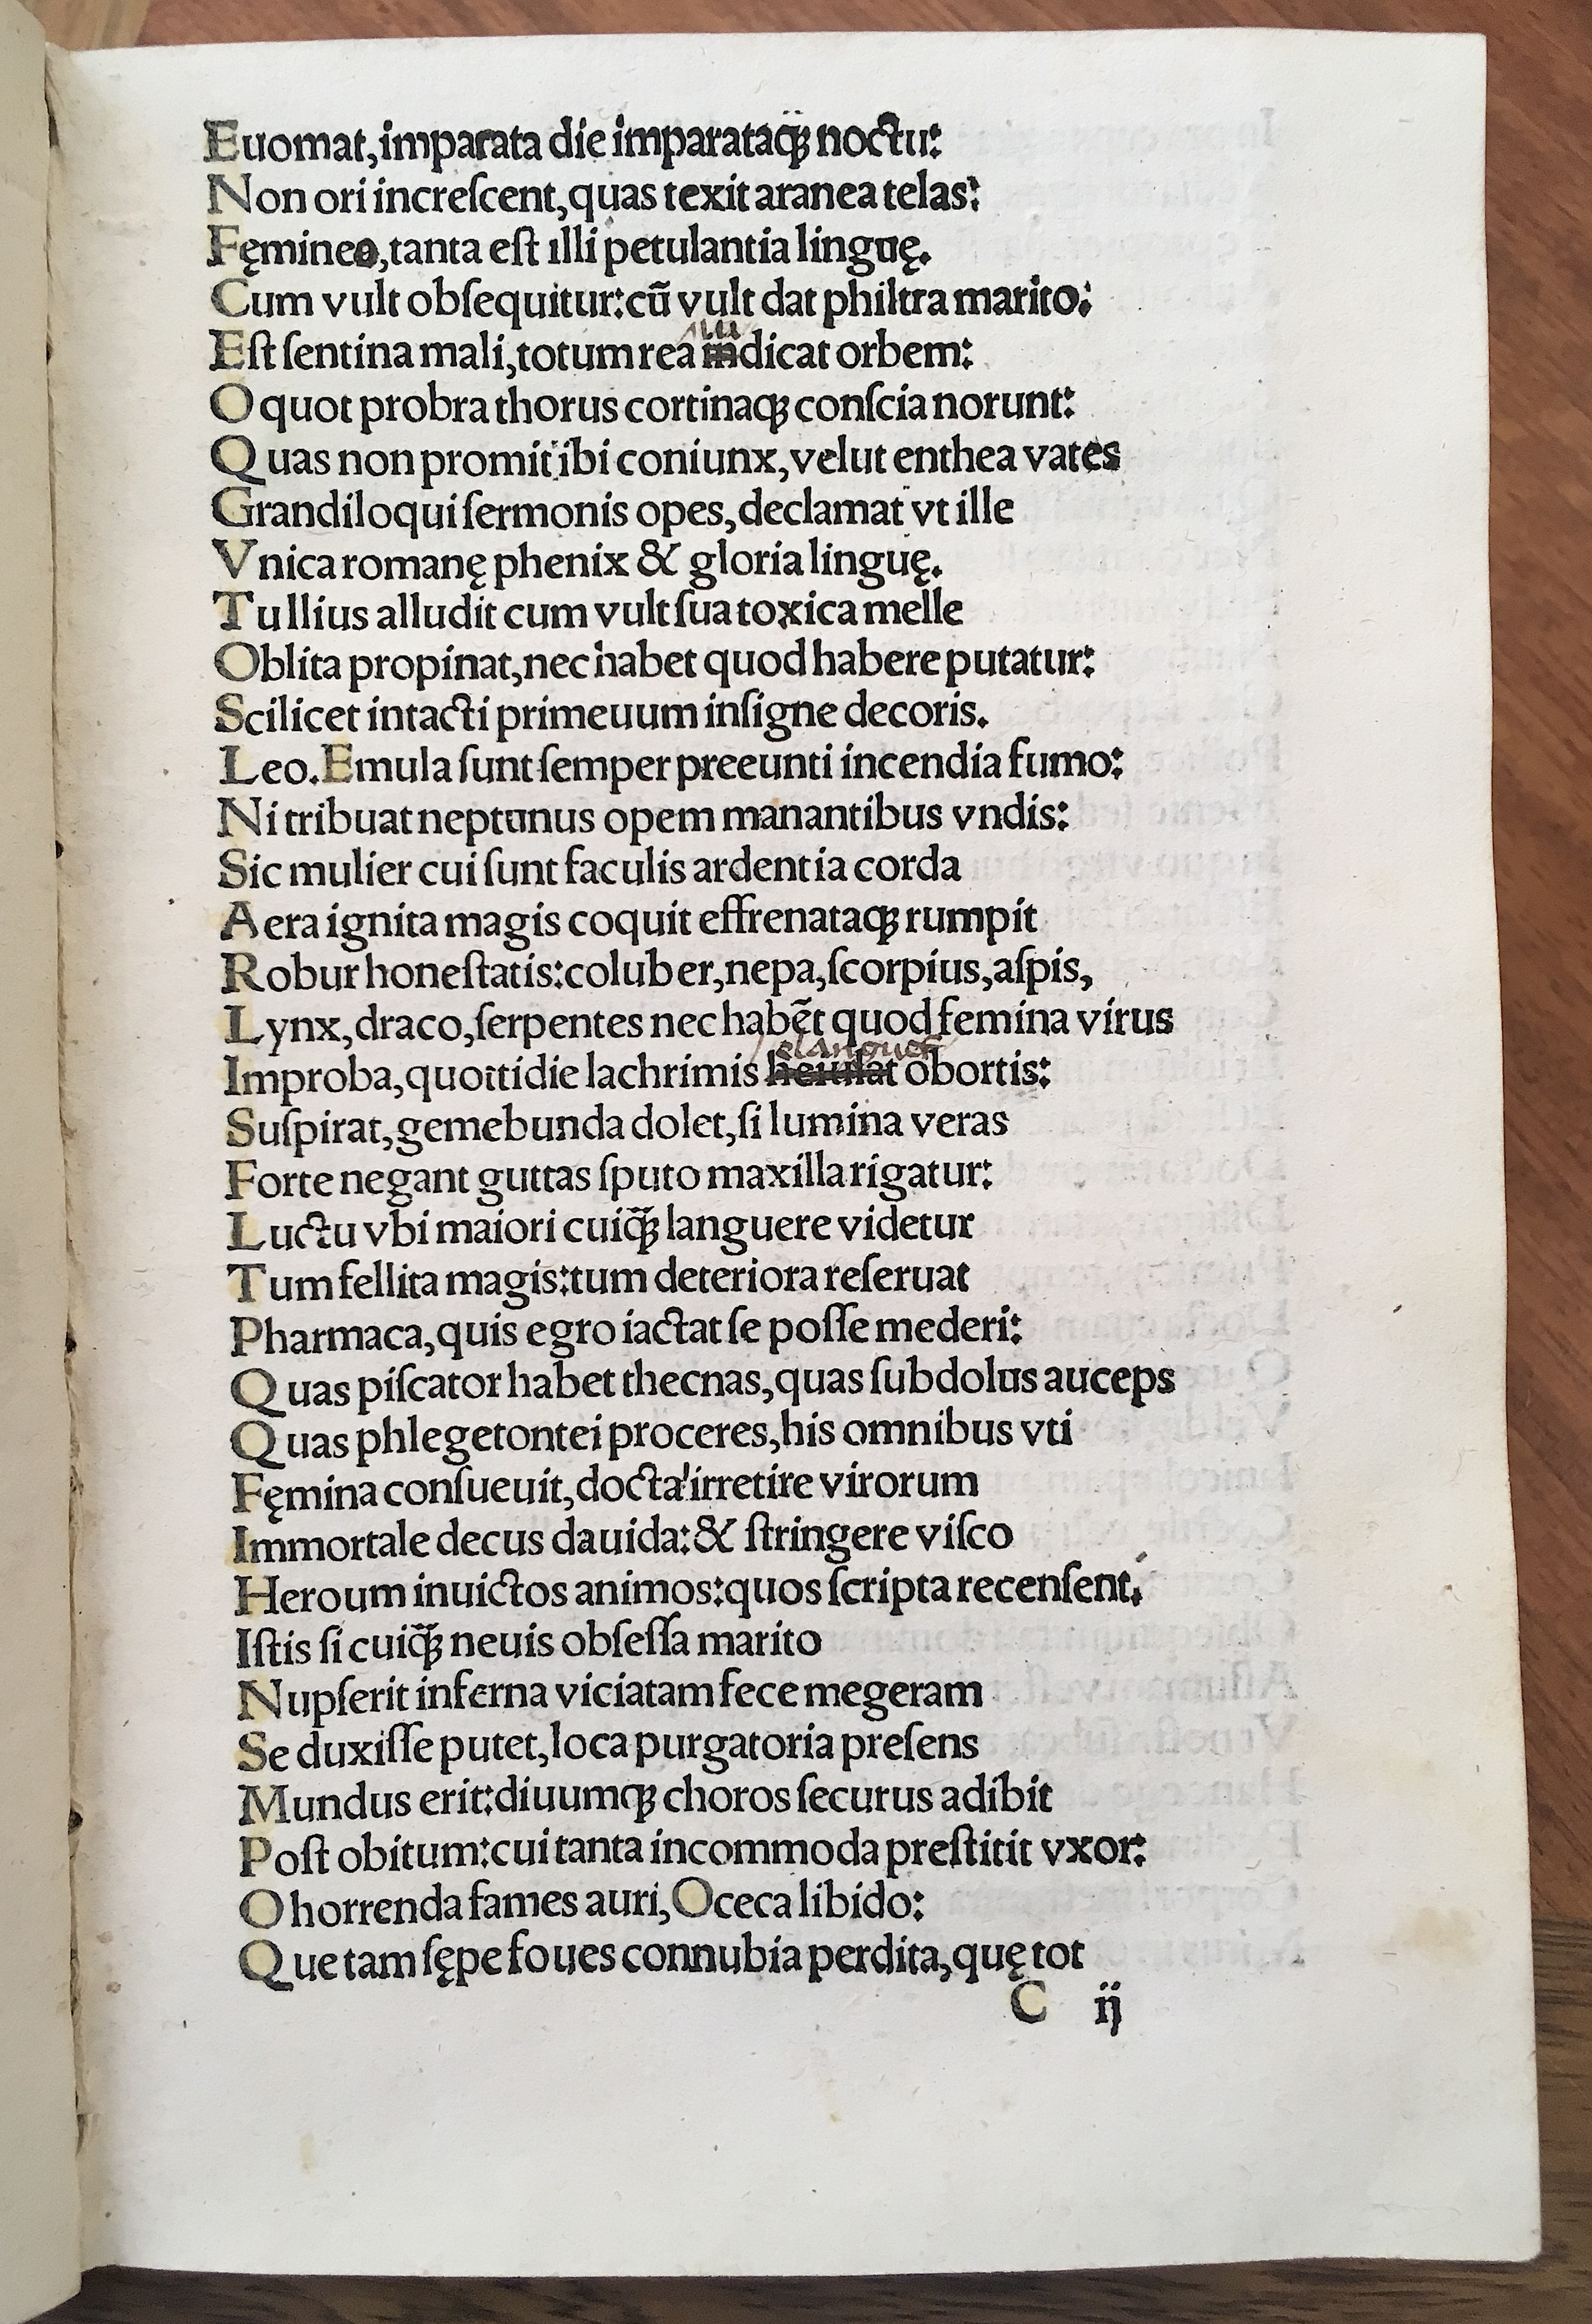 Euomat,imparata die imparataq̈ꝫ noctu:
Non ori increſcent,quas texit aranea telas:
Fęmineo,tanta eſt illi petulantia linguę.
Cum vult obſequitur:cū vult dat philtra marito:
Eſt ſentina mali,totum rea indicat orbem:
O quot probra thorus cortinaqꝫ conſcia norunt:
Quas non promit ibi coniunx,velut enthea vates
Grandiloqui ſermonis opes,declamat vt ille
Vnica romanę phenix & gloria linguę.
Tullius alludit cum vult ſua toxica melle
Oblita propinat,nec habet quod habere putatur:
Scilicet intacti primeuum inſigne decoris.
Leo.Emula ſunt ſemper preeunti incendia fumo:
Ni tribuat neptunus opem manantibus vndis:
Sic mulier cui ſunt faculis ardentia corda
Aera ignita magis coquit effrenataqꝫ rumpit
Robur honeſtatis:coluber,nepa,ſcorpius,aſpis,
Lynx,draco,ſerpentes nec habēt quod femina virus
Improba,quottidie lachrimis heiulat obortis:
Suſpirat,gemebunda dolet,ſi lumina veras
Forte negant guttas ſputo maxilla rigatur:
Luctu vbi maiori cuiq̈ꝫ languere videtur
Tum fellita magis:tum deteriora reſeruat
Pharmaca,quis egro iactat ſe poſſe mederi:
Quas piſcator habet thecnas,quas ſubdolus auceps
Quas phlegetontei proceres,his omnibus vti
Fęmina conſueuit,docta irretire virorum
Immortale decus dauida:& ſtringere viſco
Heroum inuictos animos:quos ſcripta recenſent.
Iſtis ſi cuiq̈ꝫ neuis obſeſſa marito
Nupſerit inferna viciatam fece megeram
Se duxiſſe putet,loca purgatoria preſens
Mundus erit:diuumqꝫ choros ſecurus adibit
Poſt obitum:cui tanta incommoda preſtitit vxor:
O horrenda fames auri,O ceca libido:
Que tam ſępe foues connubia perdita,quę tot
C ij